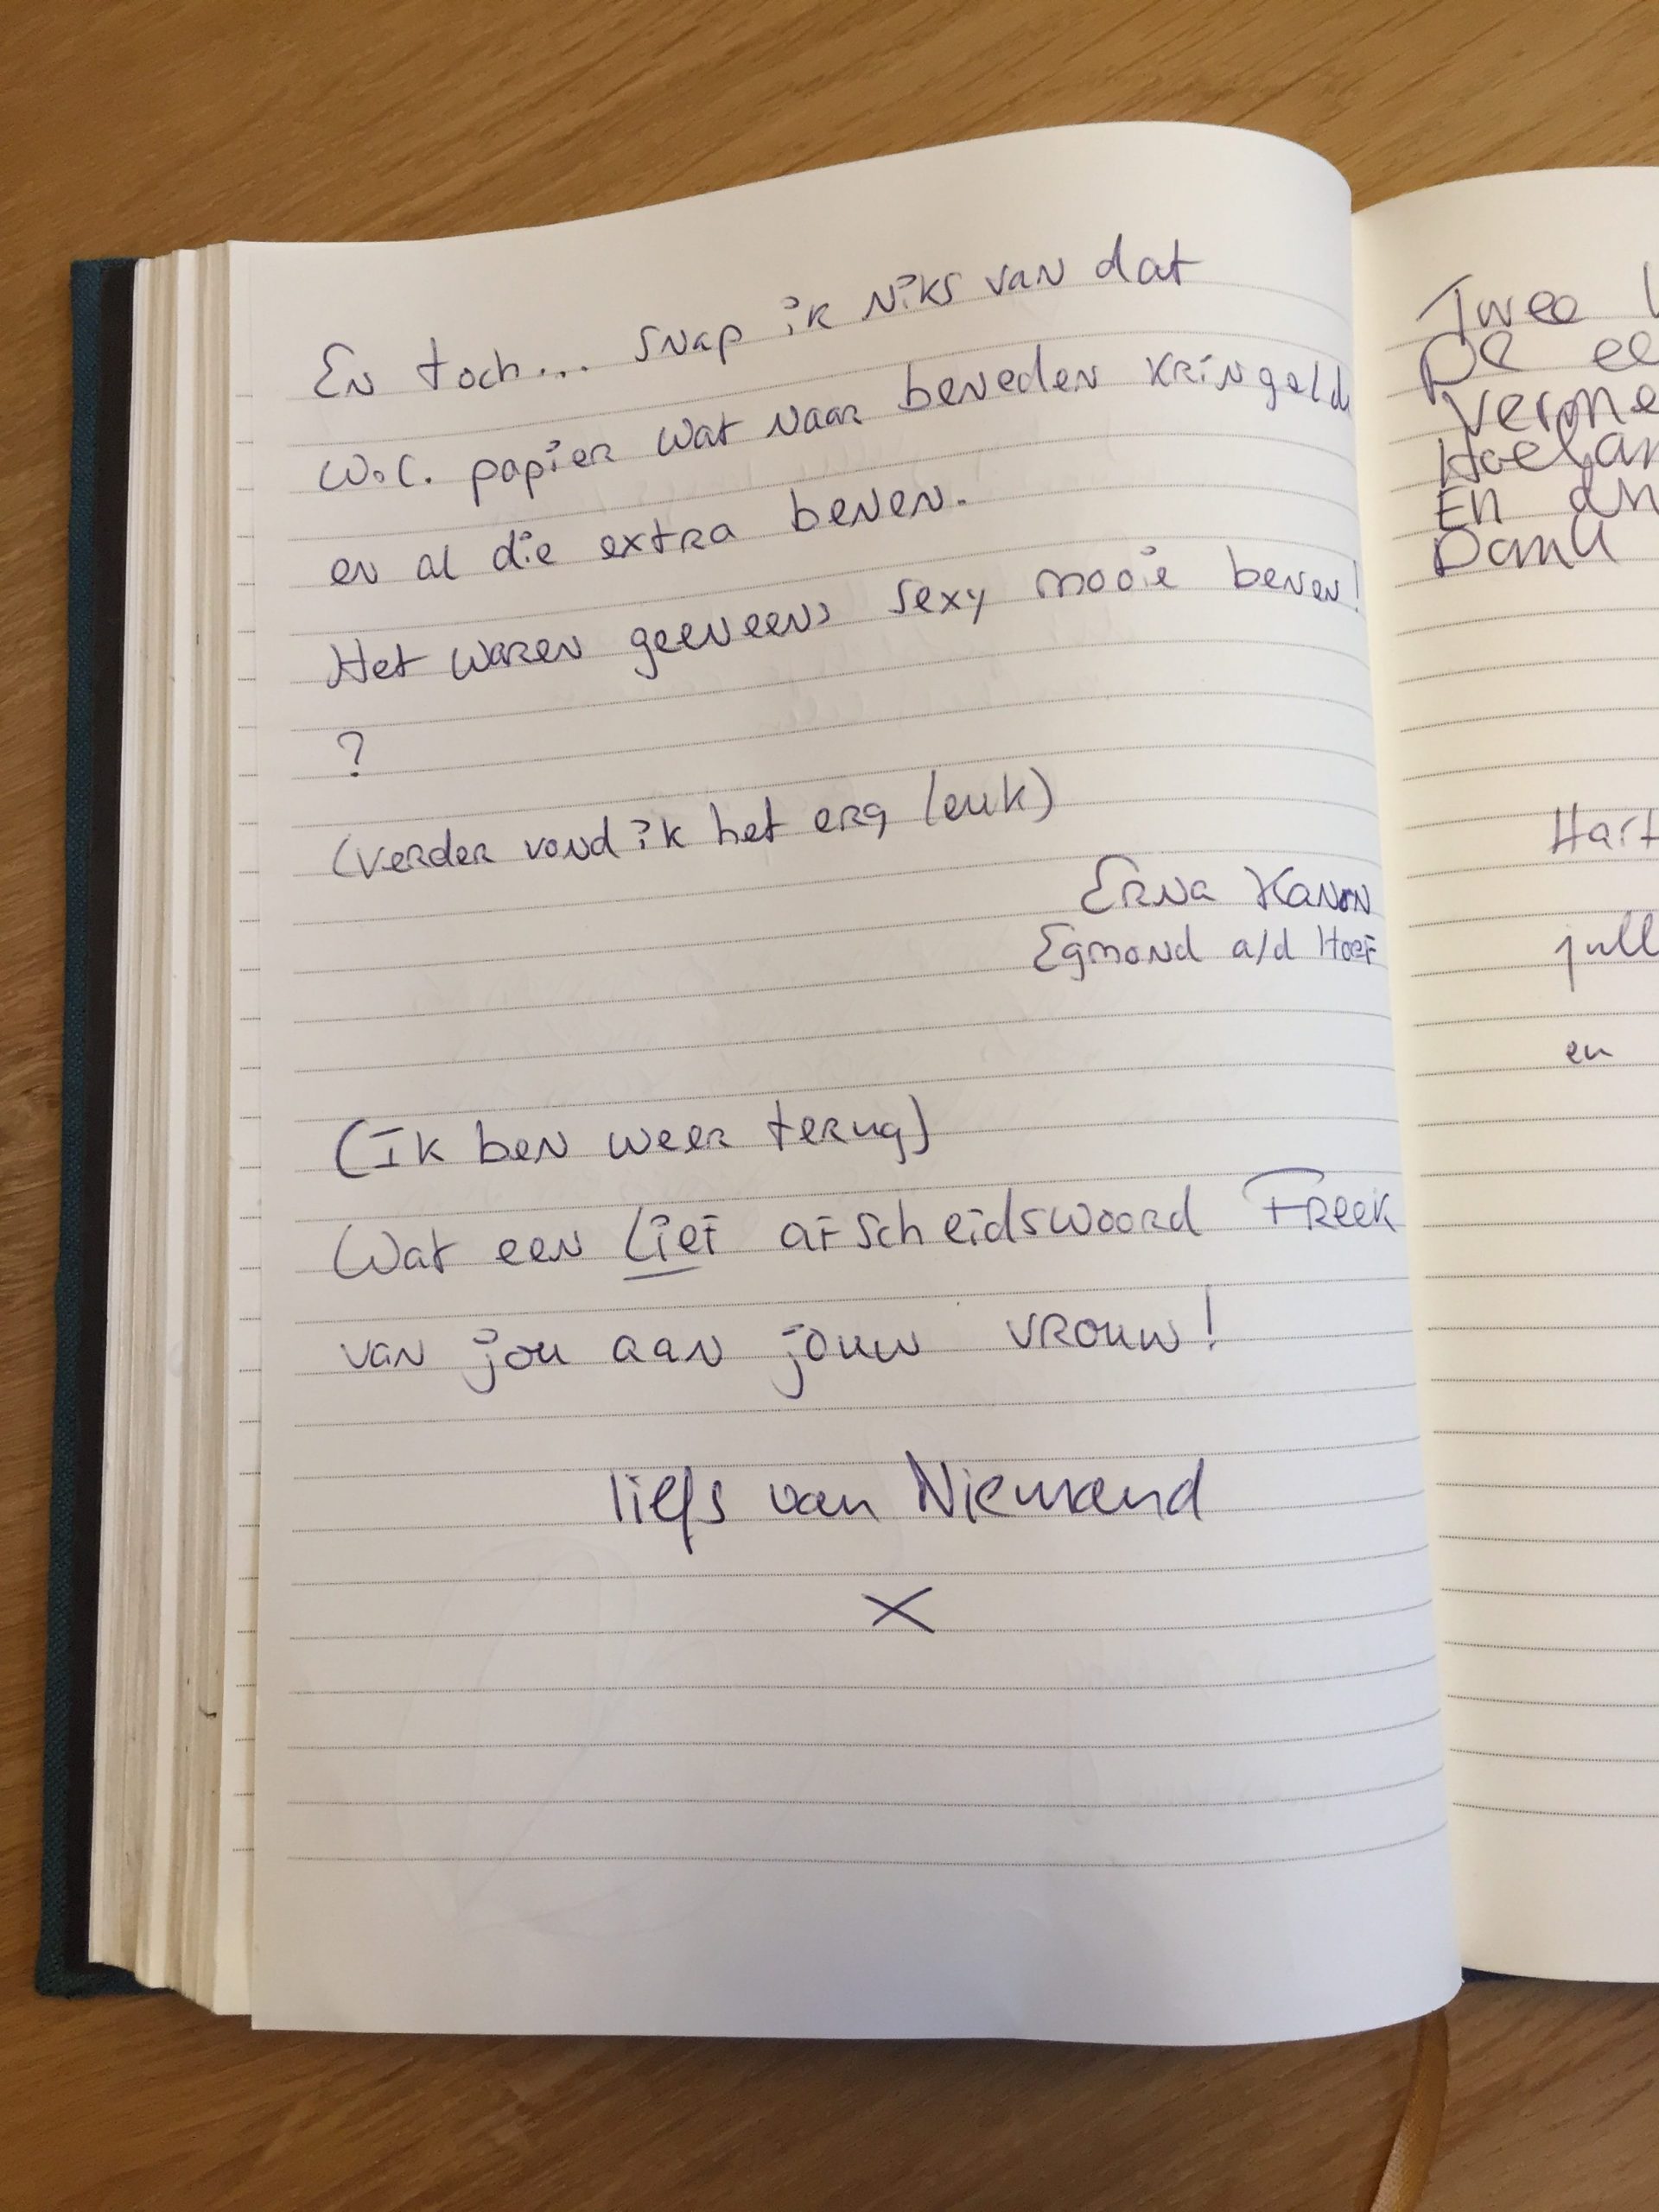 En toch... snap ik niks van dat
W.C. papier wat naar beneden kringeld
en al die extra benen.
Het waren geeneens sexy mooie benen!
?
(verder vond ik het erg leuk)
Erna Kanon
Egmond a/d Hoef
(Ik ben weer terug)
Wat een lief afscheidswoord Freek
van jou aan jouw vrouw!
liefs van Niemand
X
Twee
De ee
verme
Hoelan
En
Dank
Hart
jull
en